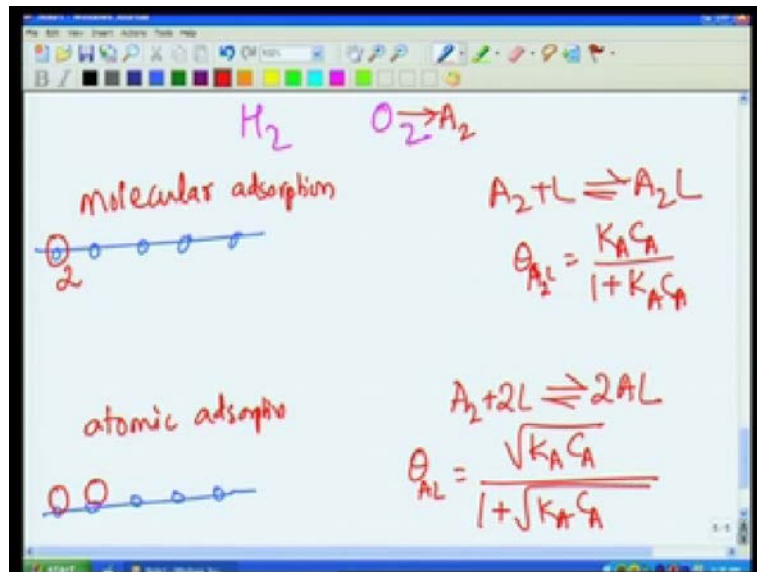 File Edit View Insert Actions Tools Help
B I
H₂ O₂ → A₂
molecular adsorption
A₂ + L ⇌ A₂L
2
θ_A₂L = K_A C_A / (1 + K_A C_A)
atomic adsorptio
A₂ + 2L ⇌ 2AL
θ_AL = √(K_A C_A) / (1 + √(K_A C_A))
5/5